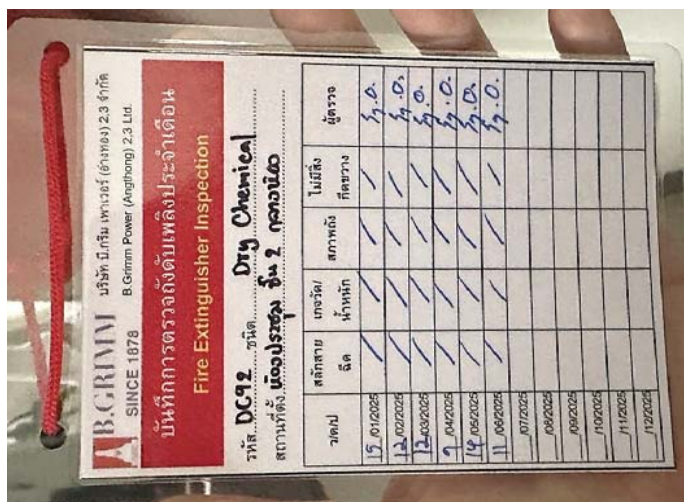 B.GRIMM
SINCE 1878
บริษัท บี.กริม เพาเวอร์ (อ่างทอง) 2,3 จำกัด
B.Grimm Power (Angthong) 2,3 Ltd.
บันทึกการตรวจถังดับเพลิงประจำเดือน
Fire Extinguisher Inspection
รหัส DC92 ชนิด Dry Chemical
สถานที่ตั้ง ห้องประชุม ชั้น 2
ว/ด/ป สลักสาย ฉีด เกจวัด/ น้ำหนัก สภาพถัง ไม่มีสิ่ง กีดขวาง ผู้ตรวจ
15/01/2025 / / / /
12/02/2025 / / / /
12/03/2025 / / / /
9/04/2025 / / / /
14/05/2025 / / / /
11/06/2025 / / / /
/07/2025
/08/2025
/09/2025
/10/2025
/11/2025
/12/2025